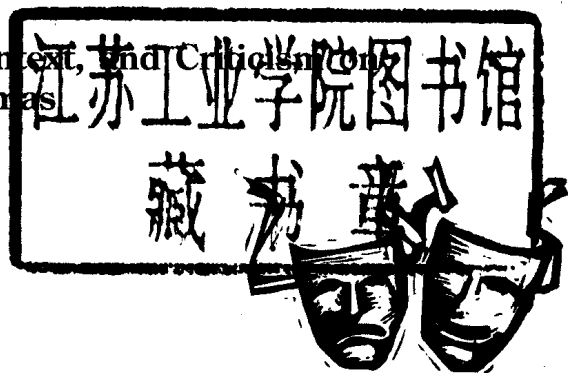 ntext, and Criticism on
mas
江苏工业学院图书馆
藏书章